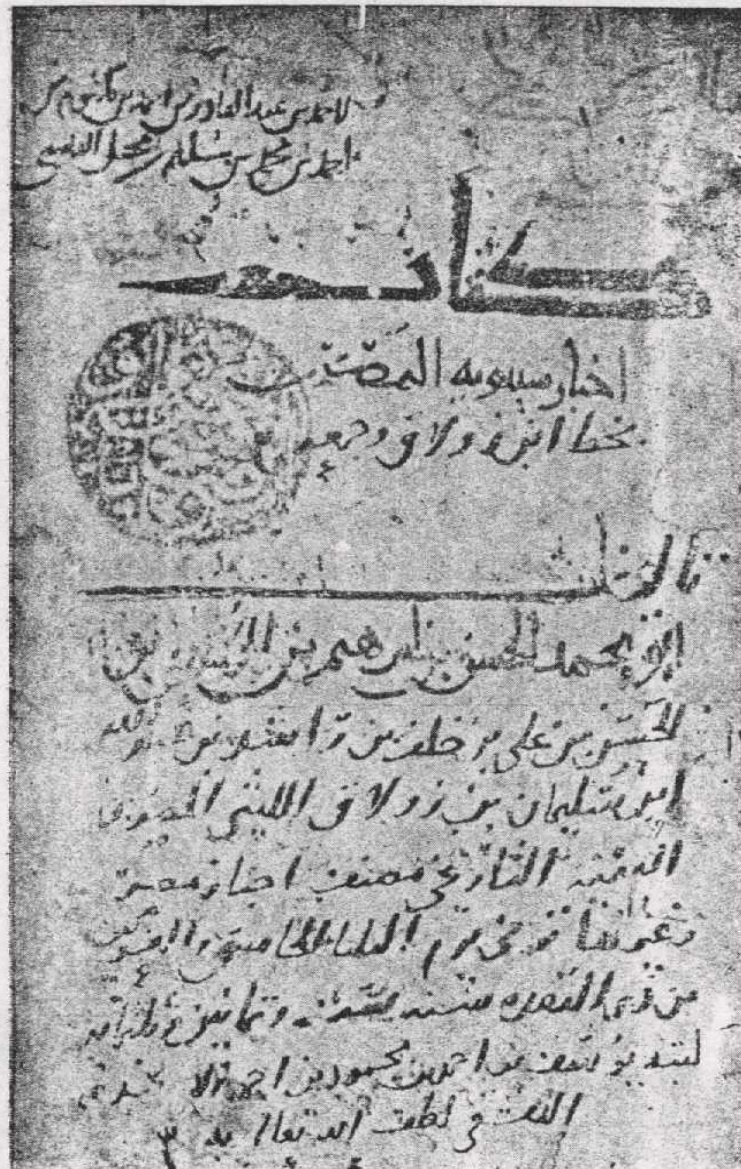 لاحمد بن عبد القادر بن احمد بن مكتوم بن
احمد بن محمد بن سليم بن محمد القيسي
كتاب فيه
اخبار سيبويه المصري
بخط ابن زولاق وجمعه
تاليف
ابو محمد الحسن بن ابرهيم بن الحسين بن
الحسن بن علي بن خلف بن راشد بن عبد الله
ابن سليمان بن زولاق الليثي المصري
الفقيه التاريخي مصنف اخبار مصر
وغيرها توفي يوم الثلثا الخامس والعشرين
من ذي القعده سنة ست وثمانين وثلثمايه
كتبه يوسف بن احمد بن محمود بن احمد
في لطف الله تعالى به